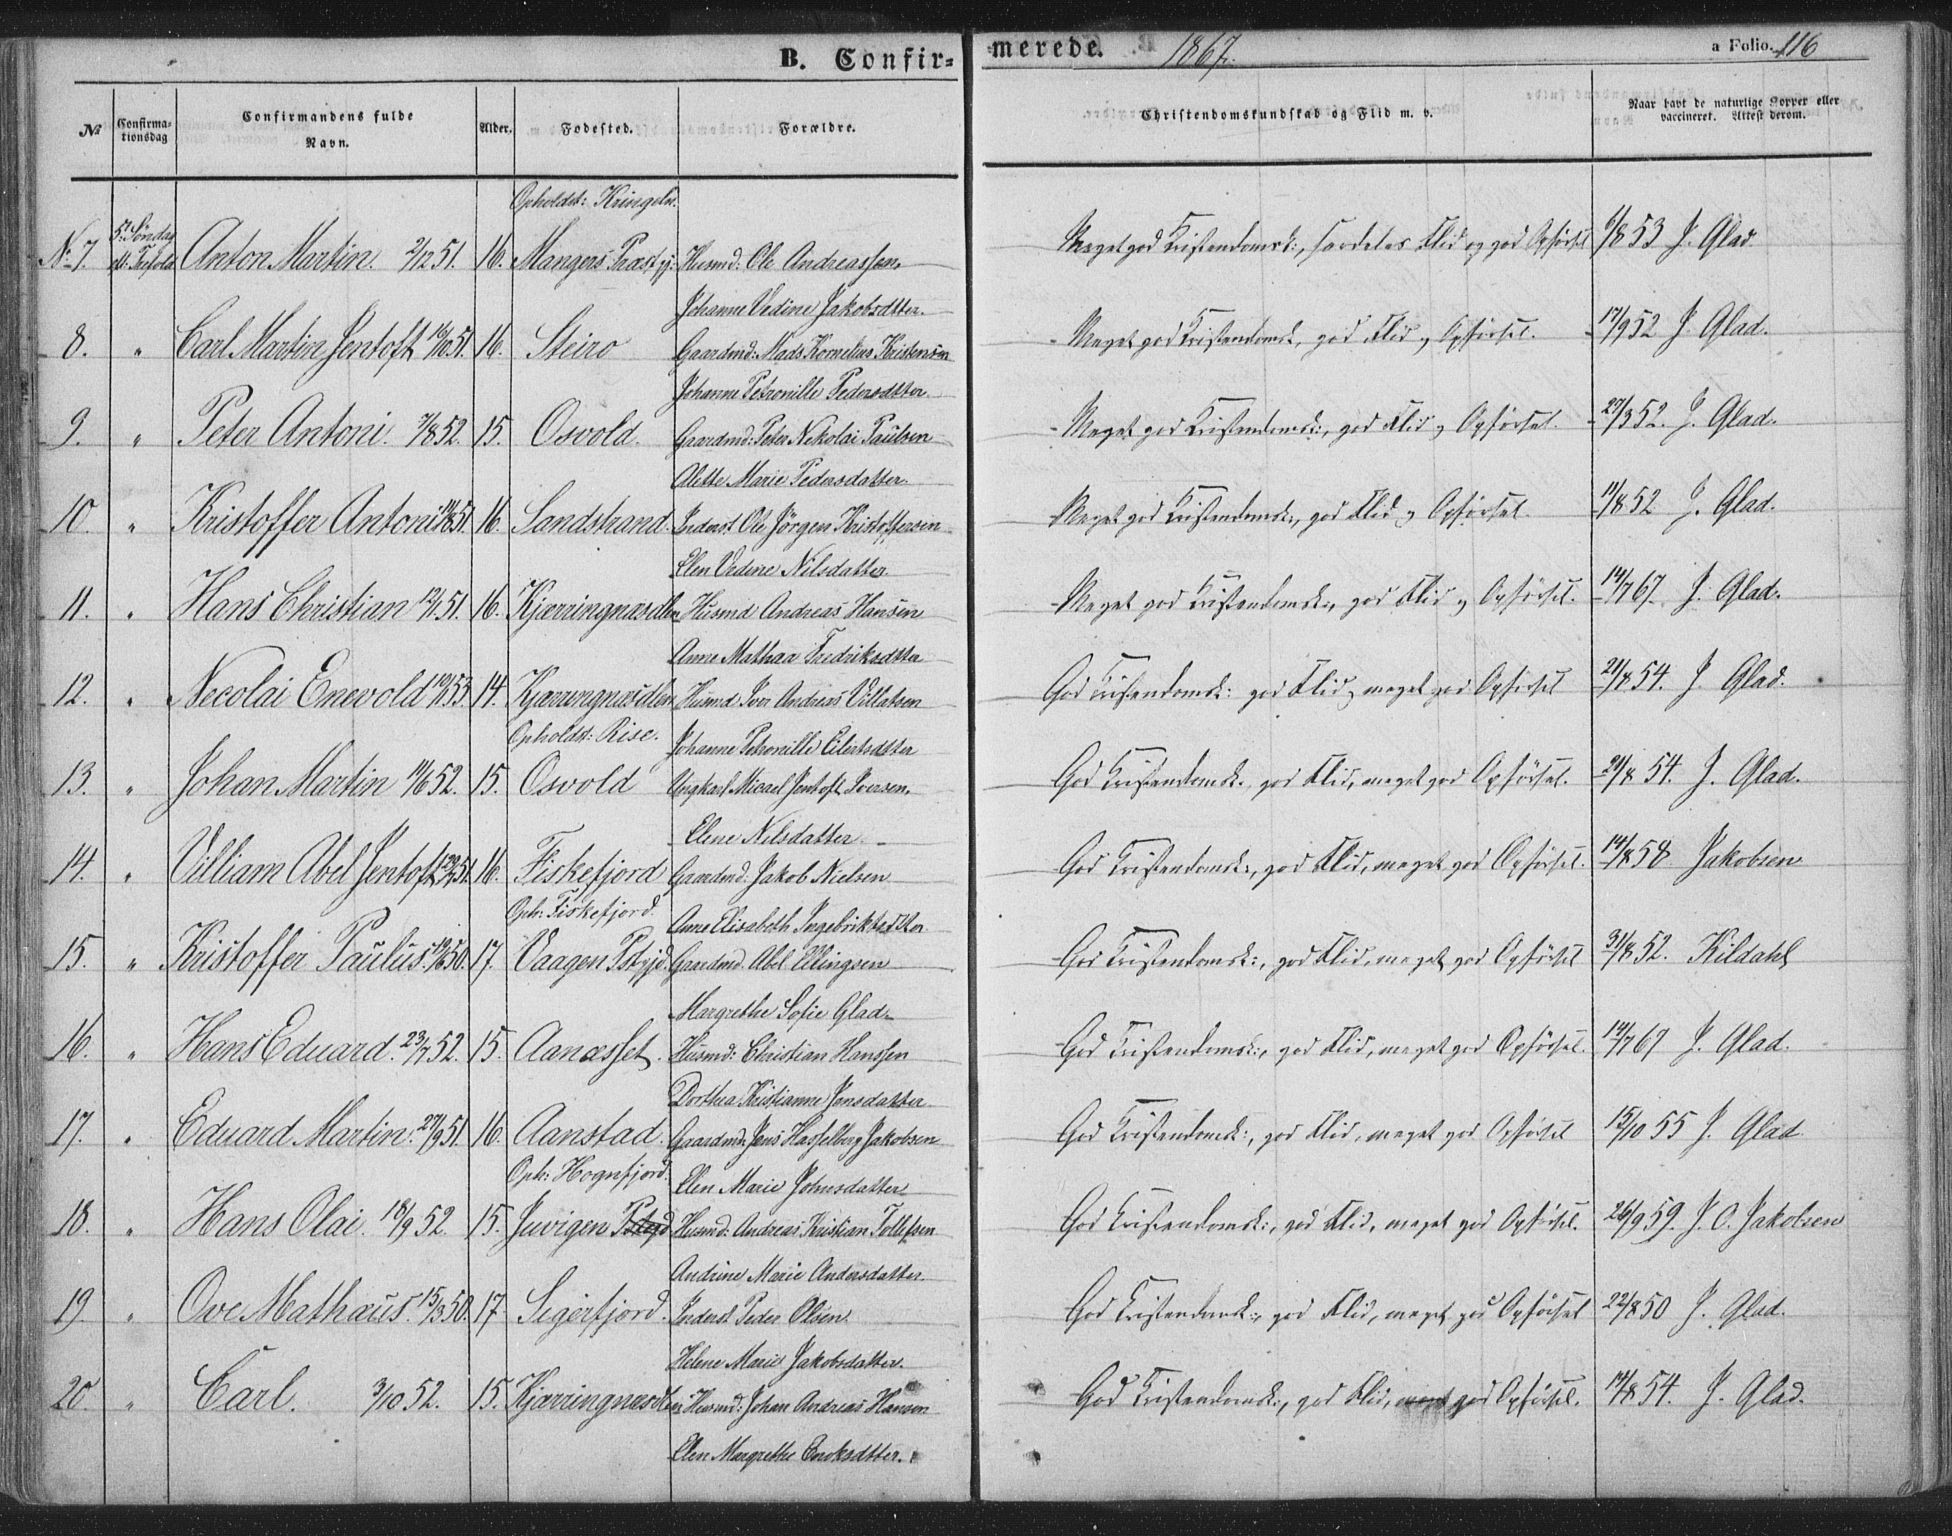 B. Confir= merede. 1867. a Folio. 116
№ Confirma-tionsdag Confirmandens fulde Navn. Alder. Fødested. Forældre. Christendomskundskab og Flid m. v. Naar havt de naturlige Kopper eller vaccineret. Attest derom.
Opholdst: Kringeln.
No 7. 5te Søndag eft. Trefold. Anton Martin. 2/12 51. 16. Mangers Præstgj: Husmd: Ole Andreassen, Meget god Kristendomsk:, særdeles Flid og god Opførsel 6/8 53 J. Glad.
Johanne Vedine Jakobsdtter.
8. " Carl Martin Jentoft 16/10 51. 16. Steiro Gaardmd: Mads Kornelius Kristensen Meget god Kristendomsk, god Flid og Opførsel. 17/9 52 J Glad.
Johanne Petronille Pedersdtter
9. " Peter Antoni. 7/8 52. 15. Osvold. Gaardmd: Peter Nikolai Paulsen Meget god Kristendomsk:, god Flid og Opførsel. 27/3 52. J. Glad.
Alette Marie Pedersdatter.
10. " Kristoffer Antoni 51 16. Sandstrand. Inderst Ole Jörgen Kristoffersen Meget god Kristendomsk:, god Flid og Opførsel. 14/8 52 J. Glad.
Elen Vedine Nilsdatter.
11. " Hans Christian 12/1 51. 16. Kjærringnæsdlen Husmd Andreas Hansen Meget god Kristendomsk:, god Flid og Opførsel. 14/7 67. J. Glad.
Anne Mathaa Fredriksdtter
12. " Necolai Enevold 53. 14. Kjærringnæsdlen Husmd Iver Andreas Villatsen God Kristendomsk: god Flid, meget god Opførsel 21/8 54. J. Glad.
Opholdst: Rise. Johanne Petronille Eilertsdtter
13. " Johan Martin 11/6 52. 15. Osvold Ungkarl Micael Jentoft Iversen. God Kristendomsk. god Flid, meget god Opførsel. 21/8 54. J. Glad.
Elene Nilsdatter.
14. " Villiam Abel Jentoft 51. 16. Fiskefjord Gaardmd: Jakob Nielsen God Kristendomsk:, god Flid, meget god Opførsel. 14/8 58 Jakobsen
Oph: Fiskefjord. Anne Elisabeth Ingebriktsdtter
15. " Kristoffer Paulus. 50. 17. Vaagen Pstgjd. Gaardmd. Abel Ellingsen God Kristendomsk:, god Flid, meget god Opførsel 31/8 52. Kildahl
Margrethe Sofie Glad.
16. " Hans Eduard. 23/7 52. 15. Aanæsset. Husmd: Christian Hanssen God Kristendomsk:, god Flid, meget god Opførsel. 14/7 67 J. Glad.
Dorthea Kristianne Jensdatter
17. " Eduard Martin. 27/9 51. 16. Aanstad. Gaardmd: Jens Hasselberg Jakobsen God Kristendomsk:, god Flid, meget god Opførsel 15/10 55 J. Glad
Oph: Hognfjord. Elen Marie Johnsdatter
18. " Hans Olai. 18/9 52. 15. Juvigen Pstgjd Husmd: Andreas Kristian Tollefsen God Kristendomsk:, god Flid, meget god Opførsel. 26/9 59. J. O. Jakobsen
Andrine Marie Andersdatter.
19. " Ove Mathæus. 15/3 50. 17. Sigerfjord. Inderst Peder Olsen. God Kristendomsk:, god Flid, meget god Opførsel 22/8 50 J. Glad.
Helene Marie Jakobsdatter.
20. " Carl. 3/10 52. 15. Kjærringnæsdlen Husmd: Johan Andreas Hansen God Kristendomsk:, god Flid, meget god Opførsel. 14/8 54. J. Glad.
Elen Margrethe Enoksdtter.